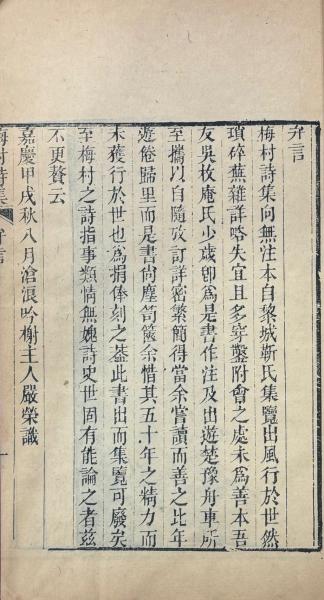 弁言
梅村詩集向無注本自黎城靳氏集覽出風行於世然
瑣碎蕪雜詳略失宜且多穿鑿附會之處未為善本吾
友吳枚庵氏少歲卽為是書作注及出遊楚豫舟車所
至攜以自隨攷訂詳密繁簡得當余嘗讀而善之比年
遊倦歸里而是書尙塵笥篋余惜其五十年之精力而
未獲行於世也為捐俸刻之葢此書出而集覽可廢矣
至梅村之詩指事類情無媿詩史世固有能論之者茲
不更贅云
嘉慶甲戌秋八月滄浪吟榭主人嚴榮識
梅村詩集 弁言 一